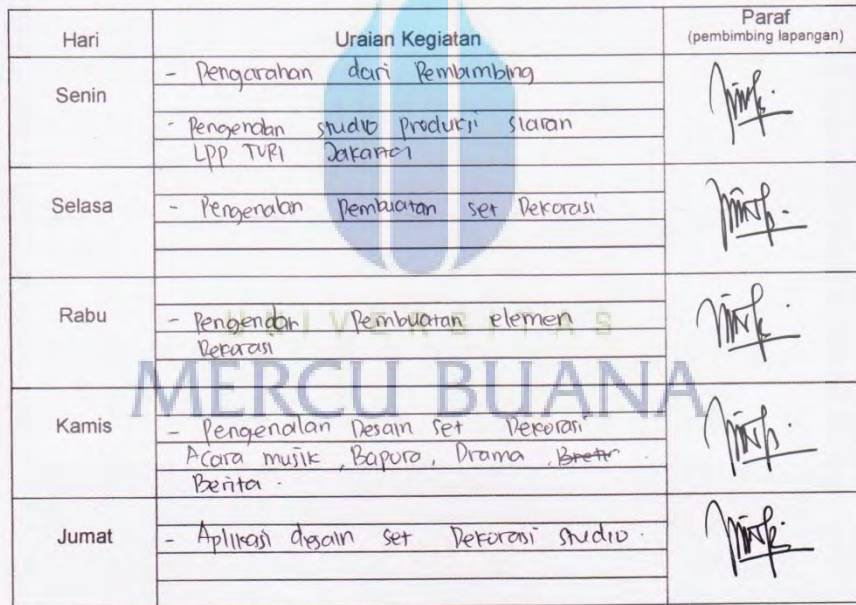 Hari Uraian Kegiatan Paraf
(pembimbing lapangan)
Senin
- Pengarahan dari Pembimbing
- Pengenalan studio produksi siaran
LPP TVRI Jakarta
Selasa - Pengenalan Pembuatan set Dekorasi
Rabu - Pengenalan Pembuatan elemen
Dekorasi
UNIVERSITAS
MERCU BUANA
Kamis - Pengenalan Desain set Dekorasi
Acara musik, Bapora, Drama,
Berita.
Jumat - Aplikasi desain set Dekorasi studio.